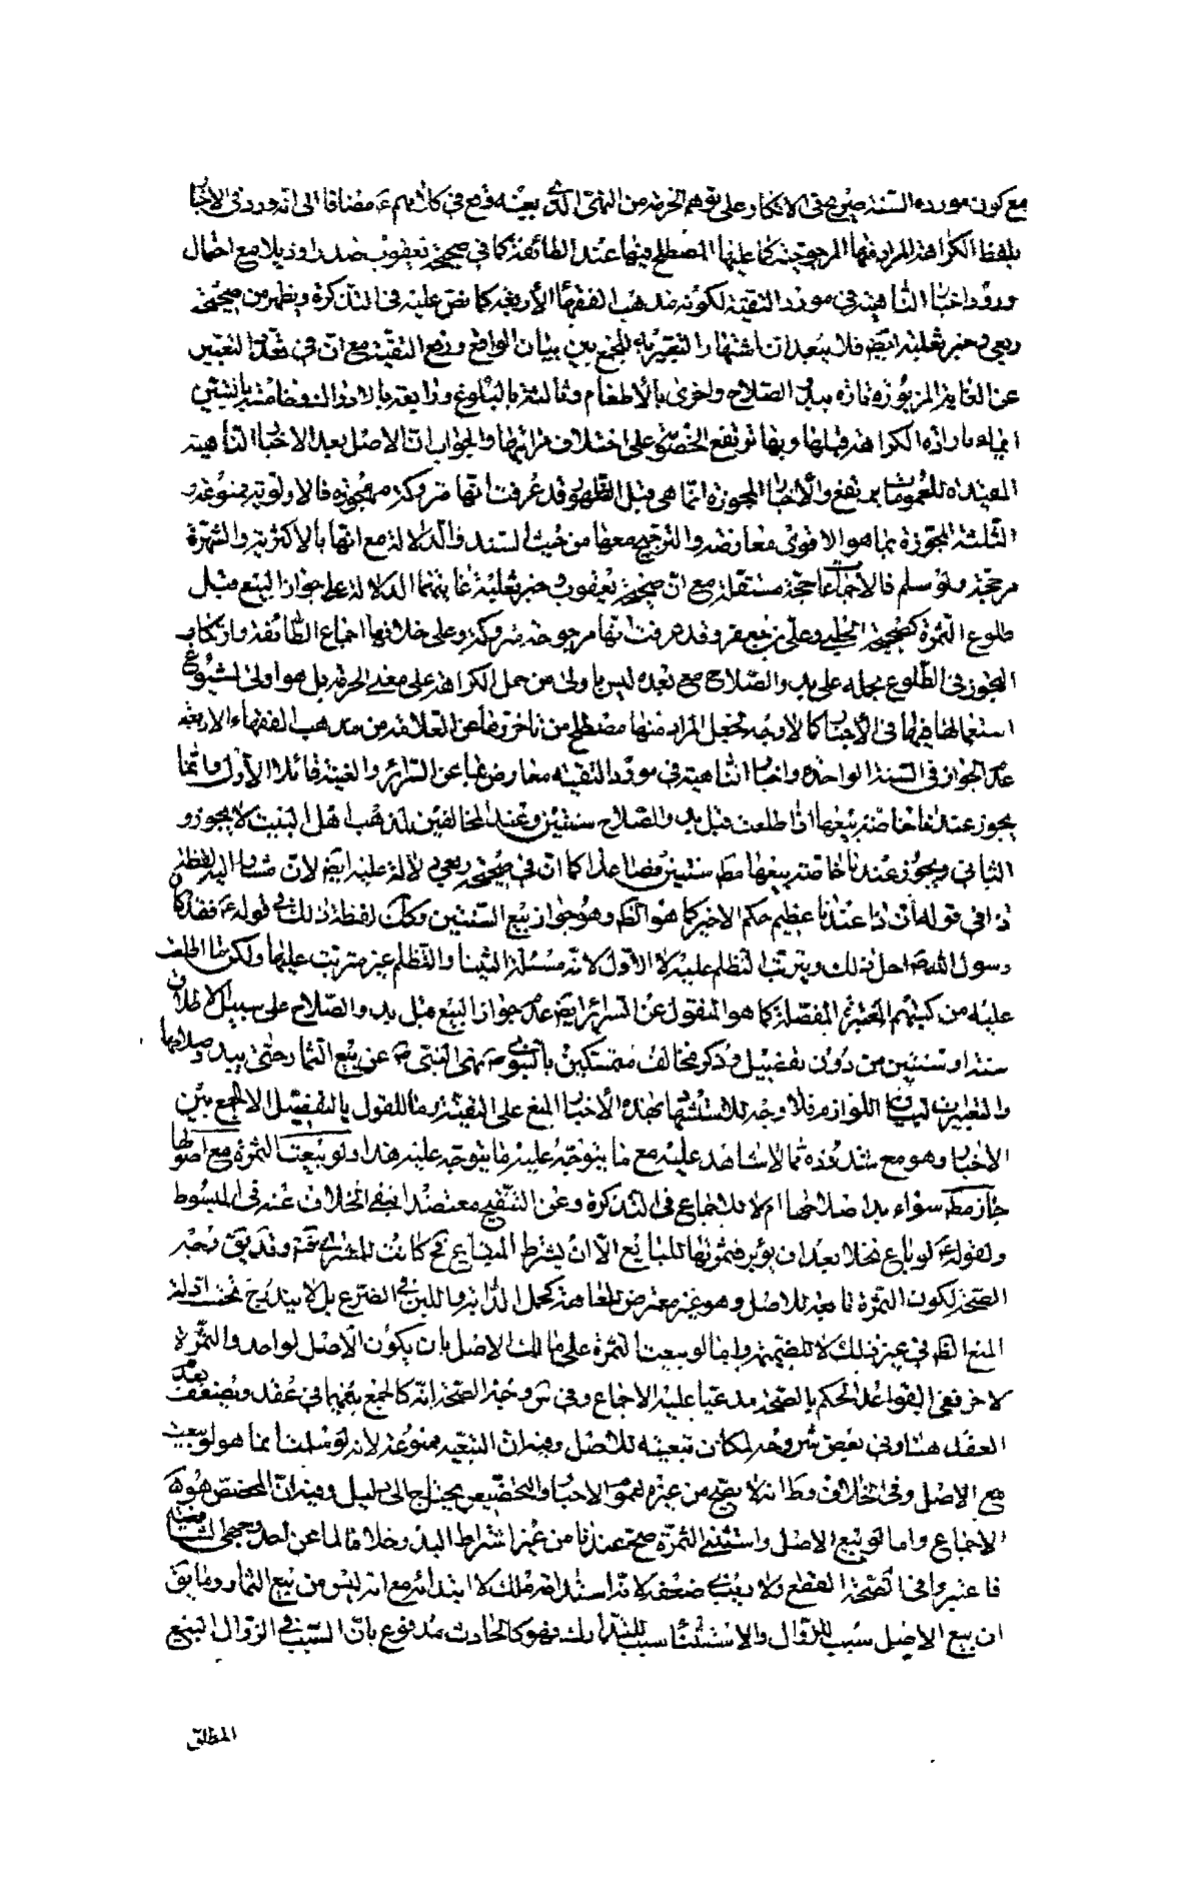 مع كون مورده السنة صريح في الانكار على توهم الحرمة من النهى الذي بعينه وقع في كلامهم ع مضافا الى انه ورد في الاخبار
بلفظ الكراهة المراد فيها المرجوحية كما عليها المصطلح فيها عند الطائفة كما في صحيحة يعقوب صدرا وذيلا مع احتمال
ورود اخبار الناهية في مورد التقية لكونه مذهب الفقهاء الأربعة كما نص عليه في التذكرة ويظهر من صحيحة
ربعى وخبر ثعلبة ايضا فلا يبعد ان اشتهار التعبير به للجمع بين بيان الواقع ورفع التقية مع ان في تعدد التعبير
عن الغاية المزبورة تارة ببدو الصلاح واخرى بالأطعام وثالثة بالبلوغ ورابعة بالادراك وخامسة بالسنتين
ايماء بارادة الكراهة قبلها وبها ترتفع الخصوص على اختلاف مراتبها والجواب ان الاصل بعد الاخبار الناهية
المقيدة للعمومات يرتفع والأخبار المجوزة انما هي قبل الظهور وقد عرفت انها متروكة مهجورة فالاولوية ممنوعة و
الثلثة المجوزة بما هو الاقوى معارضة والترجيح معها من حيث السند والدلالة مع انها بالاكثرية والشهرة
مرجحة ولو سلم فالاجماع حجة مستقلة مع ان صحيحة يعقوب وخبر ثعلبة غايتهما الدلالة على جواز البيع قبل
طلوع الثمرة كصحيحة الحلبي وعلى بن جعفر وقد عرفت انها مرجوحة متروكة وعلى خلافها اجماع الطائفة وارتكاب
التجوز في الطلوع بحمله على بدو الصلاح مع بعده ليس باولى من حمل الكراهة على معنى الحرمة بل هو اولى لشيوع
استعمالها فيها في الأخبار كما لا وجه لجعل المراد منها مصطلح من تأخر نقلا عن العلامة من مذهب الفقهاء الاربعة
عدم الجواز في السنة الواحدة واخبار الناهية في مورد التقية معارض بما عن السرائر والغنية قائلا الأول وانما
يجوز عندنا خاصة بيعها اذا طلعت قبل بدو الصلاح سنتين وعند المخالفين لمذهب اهل البيت لا يجوز و
الثاني ويجوز عندنا خاصة بيعها مط سنتين فصاعدا كما ان في صحيحة ربعى دلالة عليه ايضا لان مشار اليه لفظة
ذا في قوله ان ذا عندنا عظيم حكم الاخير كما هو الظ وهو جواز بيع السنتين وكك لفظة ذلك في قوله ع فقد كان
رسول الله ص احل ذلك ويترتب التظلم عليه لا الاول لانه مسئلة اثنينا والتظلم غير مترتب عليها ولكن ما الخلف
عليه من كتبهم المعتبرة المفصلة كما هو المنقول عن السرائر ايضا عدم جواز البيع قبل بدو الصلاح على سبيل الاطلاق
سنة او سنتين من دون تفصيل وذكر مخالف متمسكين بالنبوي ص نهى النبى ص عن بيع الثمار حتى يبدو صلاحها
والتعبيرات لبيان اللوازم فلا وجه للاستشهاد بهذه الأخبار المنع على التقية وما للقول بالتفصيل الا الجمع بين
الاخبار وهو مع شذوذه مما لا شاهد عليه مع ما يتوجه عليه ما يتوجه عليه هذا ولو بيعت الثمرة مع اصولها
جاز مط سواء بدا صلاحها ام لا للاجماع في التذكرة وعن التنقيح معتضدا بنفي الخلاف عنه في المبسوط
ولقوله ع لو باع نخلا بعد ان يؤبر فثمرتها للبايع الا ان يشترط المبتاع ثم كانت للمشترى ثمة وقد يق وجه
الصحة لكون الثمرة تابعة للاصل وهو غير معترض للعاهة كحمل الدابة واللبن في الضرع بل لا يندرج تحت ادلة
المنع الظ في غير ذلك لا للضميمة واما لو بيعت الثمرة على مالك الاصل بان يكون الاصل لواحد والثمرة
لاخر ففي القواعد الحكم بالصحة مدعيا عليه الاجماع وفي س وجه الصحة انه كالجمع بينهما في عقد ويضعف بعدم
العقد هنا وفي بعض شروحه لمكان تبعيته للاصل وفيه ان التبعية ممنوعة لانه لو سلمنا بما هو لو بيعت
مع الاصل وفي الخلاف وط انه لا يصح من غيره لعموم الاخبار والتخصيص يحتاج الى دليل وفيه ان المخصص هو
الاجماع واما لو بيع الاصل واستثنى الثمرة صح عندنا من غير اشتراط البدو خلافا لما عن احد وجهي الشافعية
فاعتبروا في الصحة القطع ولا يخفى ضعفه لانه استدامة ملك لا ابتدائه مع انه ليس من بيع الثمار وما يق
ان بيع الاصل سبب للزوال والاستثناء سبب للتدارك فهو كالحادث مدفوع بان السبب في الزوال البيع
المطلق